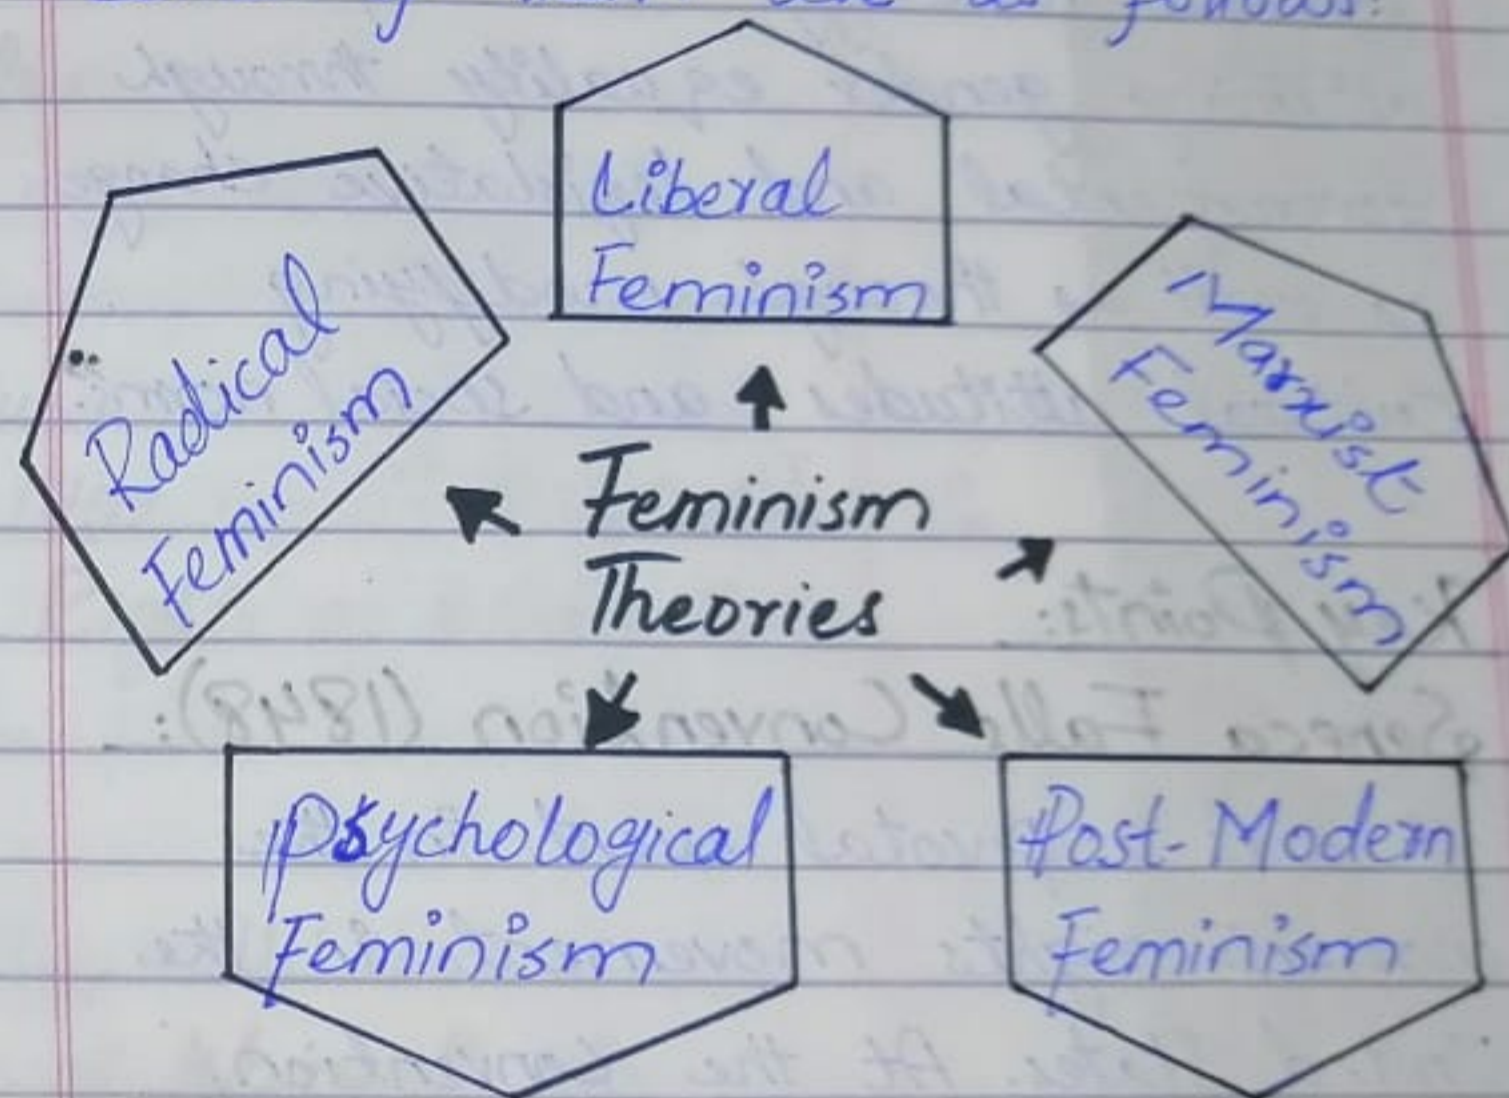 as follows:
Liberal
Feminism
Radical
Feminism
Marxist
Feminism
Feminism
Theories
Psychological
Feminism
Post-Modern
Feminism